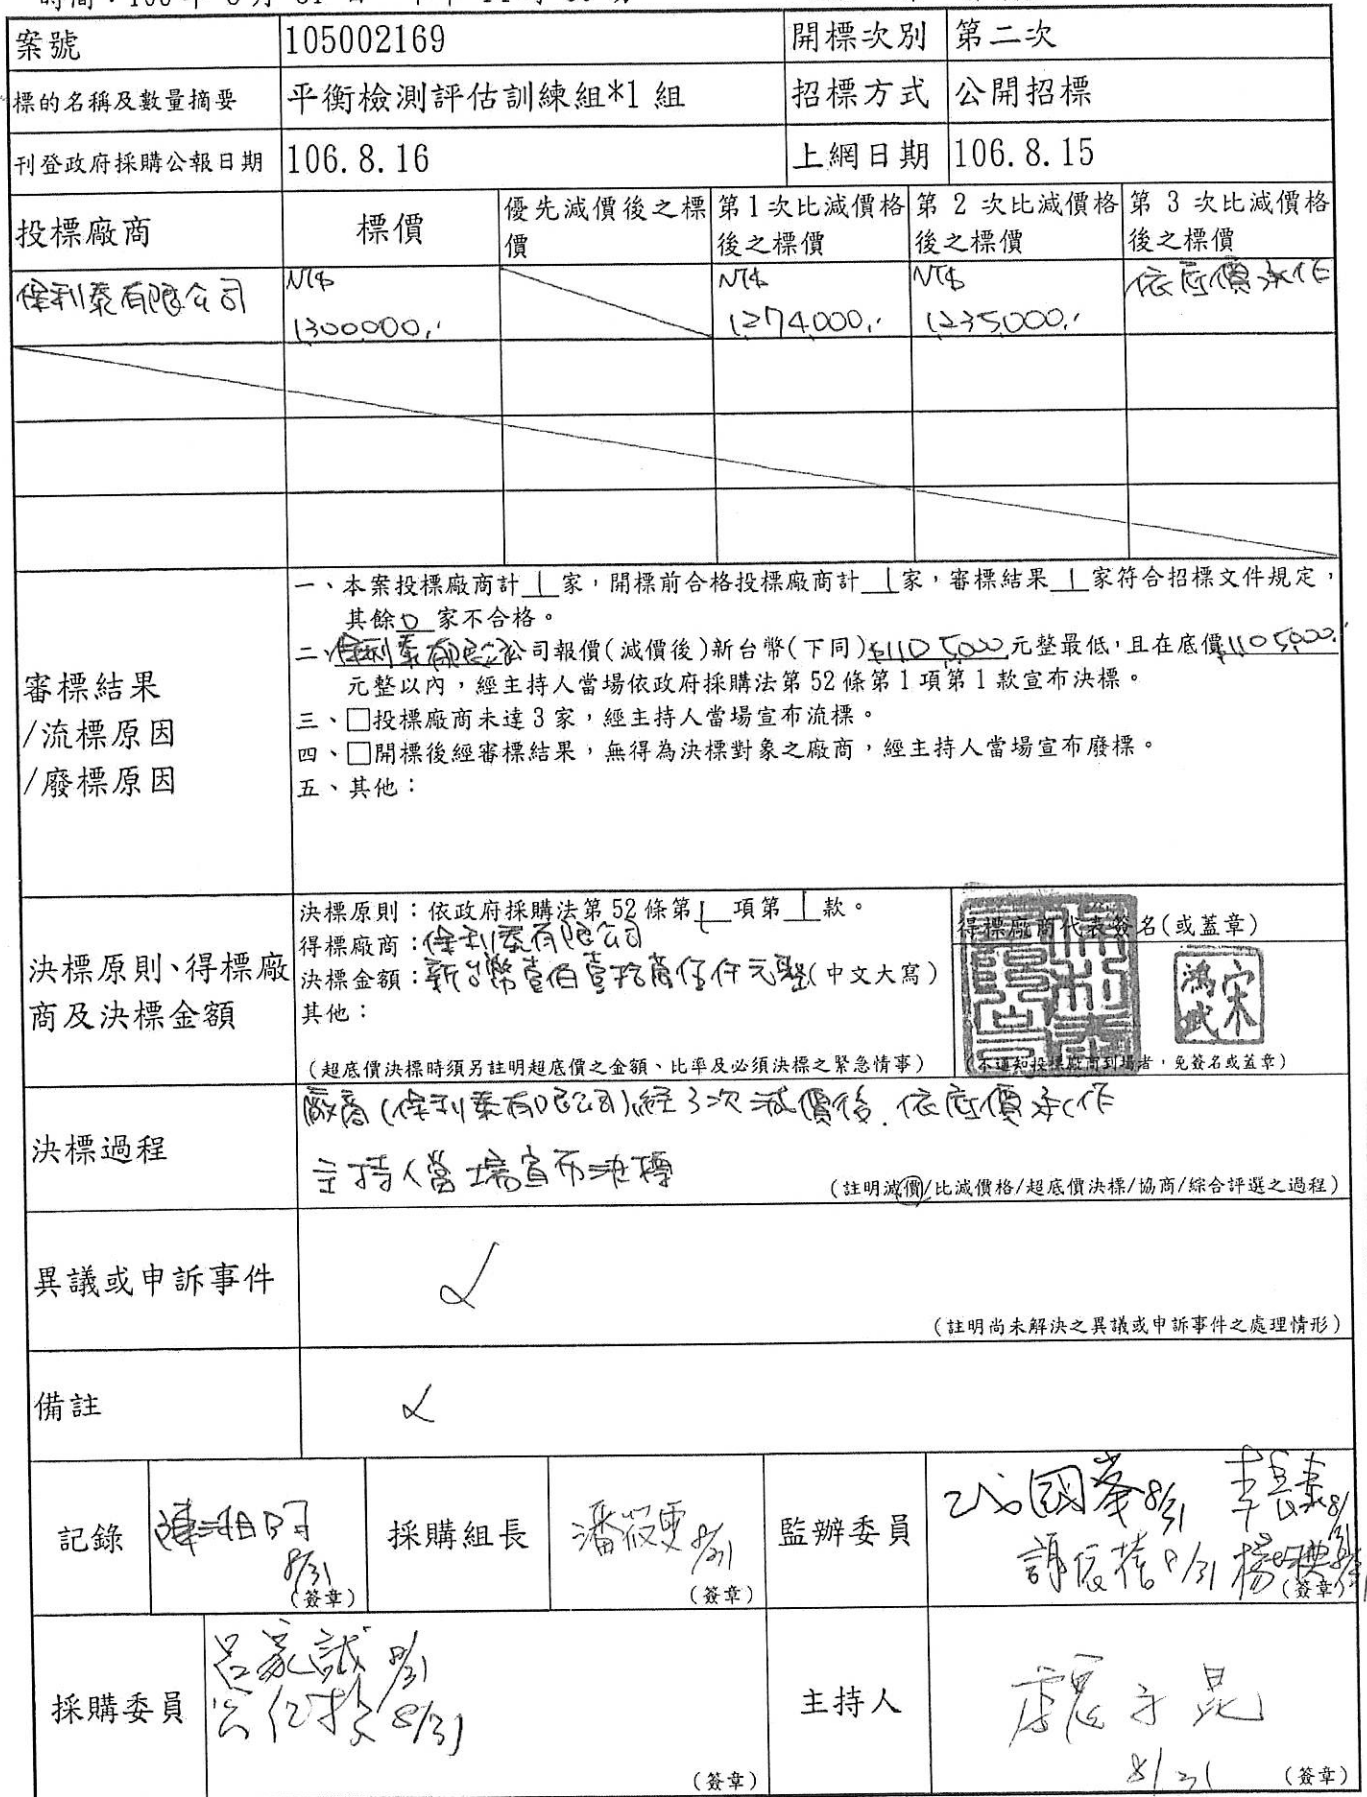 案號 105002169 開標次別 第二次
標的名稱及數量摘要 平衡檢測評估訓練組*1 組 招標方式 公開招標
刊登政府採購公報日期 106.8.16 上網日期 106.8.15
投標廠商 標價 優先減價後之標價 第1次比減價格後之標價 第 2 次比減價格後之標價 第 3 次比減價格後之標價
保利泰有限公司 NT$ 1300000.- NT$ 1,274,000.- NT$ 1,235,000.- 依底價承作
審標結果
/流標原因
/廢標原因
一、本案投標廠商計 1 家,開標前合格投標廠商計 1 家,審標結果 1 家符合招標文件規定,
其餘 0 家不合格。
二、保利泰有限公司公司報價(減價後)新台幣(下同)$1,105,000元整最低,且在底價$1,105,000.
元整以內,經主持人當場依政府採購法第52條第1項第1款宣布決標。
三、□投標廠商未達3家,經主持人當場宣布流標。
四、□開標後經審標結果,無得為決標對象之廠商,經主持人當場宣布廢標。
五、其他:
決標原則、得標廠
商及決標金額
決標原則:依政府採購法第52條第 1 項第 1 款。
得標廠商:保利泰有限公司
決標金額:新台幣壹佰壹拾萬伍仟元整(中文大寫)
其他:
(超底價決標時須另註明超底價之金額、比率及必須決標之緊急情事)
得標廠商代表簽名(或蓋章)
宋鴻武
(不通知投標廠商到場者,免簽名或蓋章)
決標過程
廠商(保利泰有限公司)經3次減價後.依底價承作
主持人當場宣布決標
(註明減價/比減價格/超底價決標/協商/綜合評選之過程)
異議或申訴事件
(註明尚未解決之異議或申訴事件之處理情形)
備註
記錄 8/31 (簽章) 採購組長 潘筱雯 8/31 (簽章) 監辦委員 國峯 8/31 8/31 8/31 (簽章)
採購委員 呂家誠 8/31
8/31 (簽章)
主持人 8/31 (簽章)